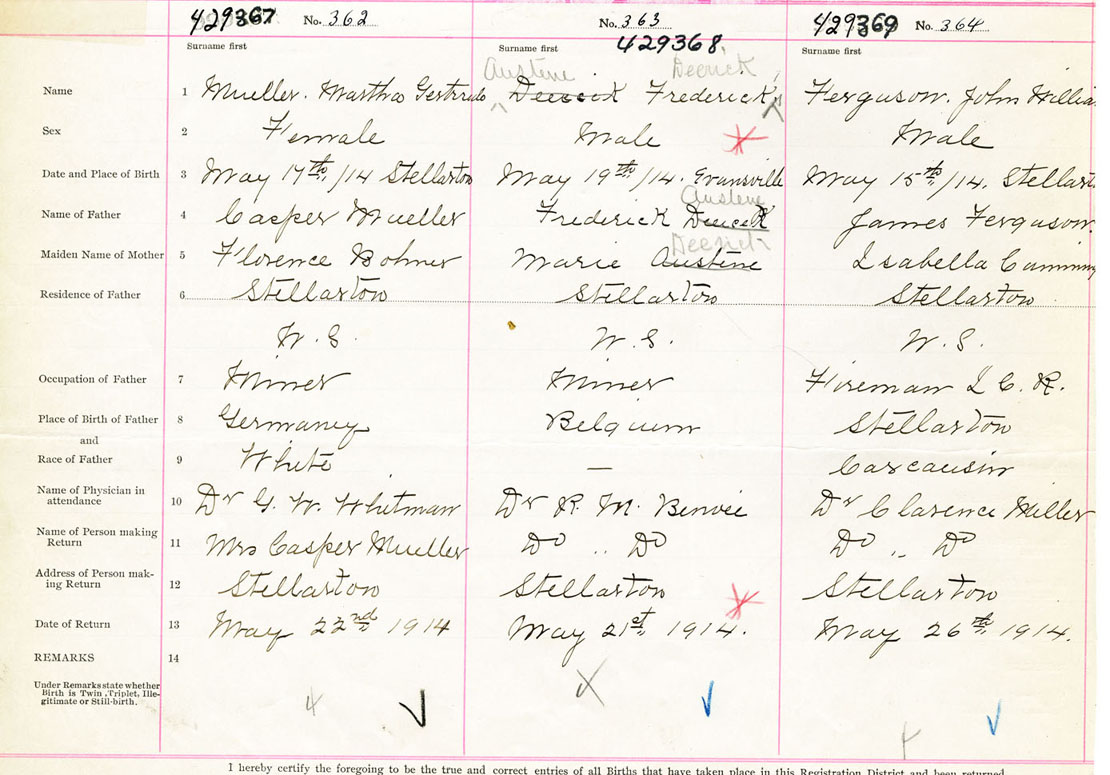 429367 No. 362 No. 363 429369 No. 364
Surname first Surname first 429368 Surname first
Austene Deerick
Name 1 Mueller. Martha Gertrude Frederick Ferguson. John Willia
Sex 2 Female Male Male
Date and Place of Birth 3 May 17th/14 Stellarton May 19th/14. Evansville May 15th/14. Stellart
Austene
Name of Father 4 Casper Mueller Frederick James Ferguson.
Deerick
Maiden Name of Mother 5 Florence Bohner Marie Austene Isabella Cumming
Residence of Father 6 Stellarton Stellarton Stellarton
N.S. N.S. N.S.
Occupation of Father 7 Miner Miner Fireman I. C. R.
Place of Birth of Father 8 Germany Belgium Stellarton
and
Race of Father 9 White — Carcausin
Name of Physician in
attendance 10 Dr G. W. Whitman Dr R. M. Benvie Dr Clarence Miller
Name of Person making
Return 11 Mrs Casper Mueller Do .. Do Do .. Do
Address of Person mak-
ing Return 12 Stellarton Stellarton Stellarton
Date of Return 13 May 22nd, 1914 May 21st, 1914. May 26th, 1914.
REMARKS 14
Under Remarks state whether
Birth is Twin, Triplet, Ille-
gitimate or Still-birth.
I hereby certify the foregoing to be the true and correct entries of all Births that have taken place in this Registration District and been returned